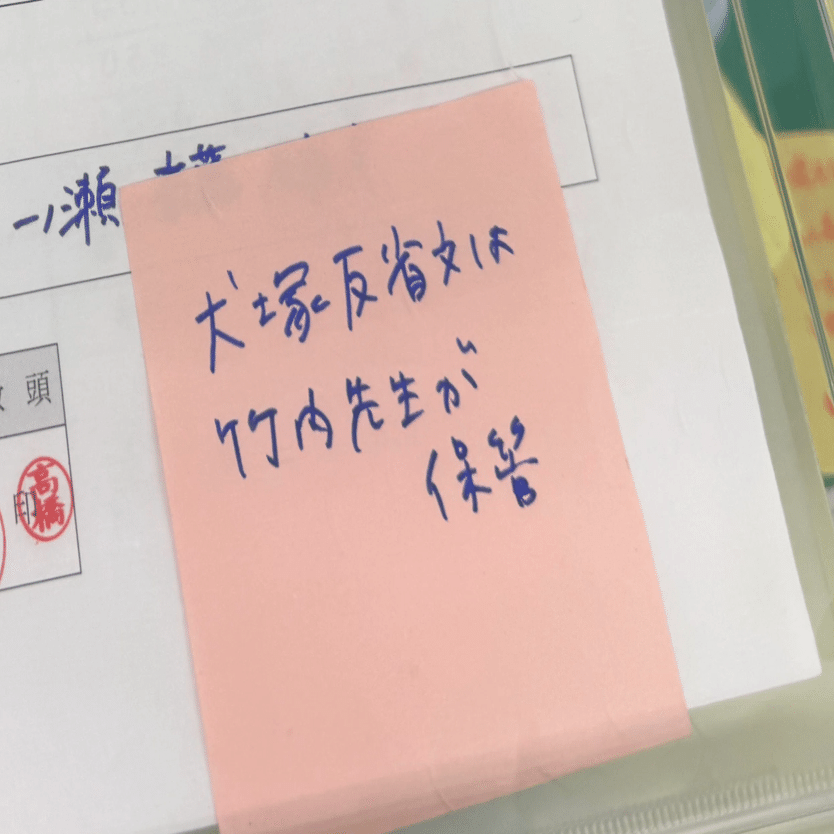 一ノ瀬
犬塚反省文は
竹内先生が
保管
頭
印
高橋